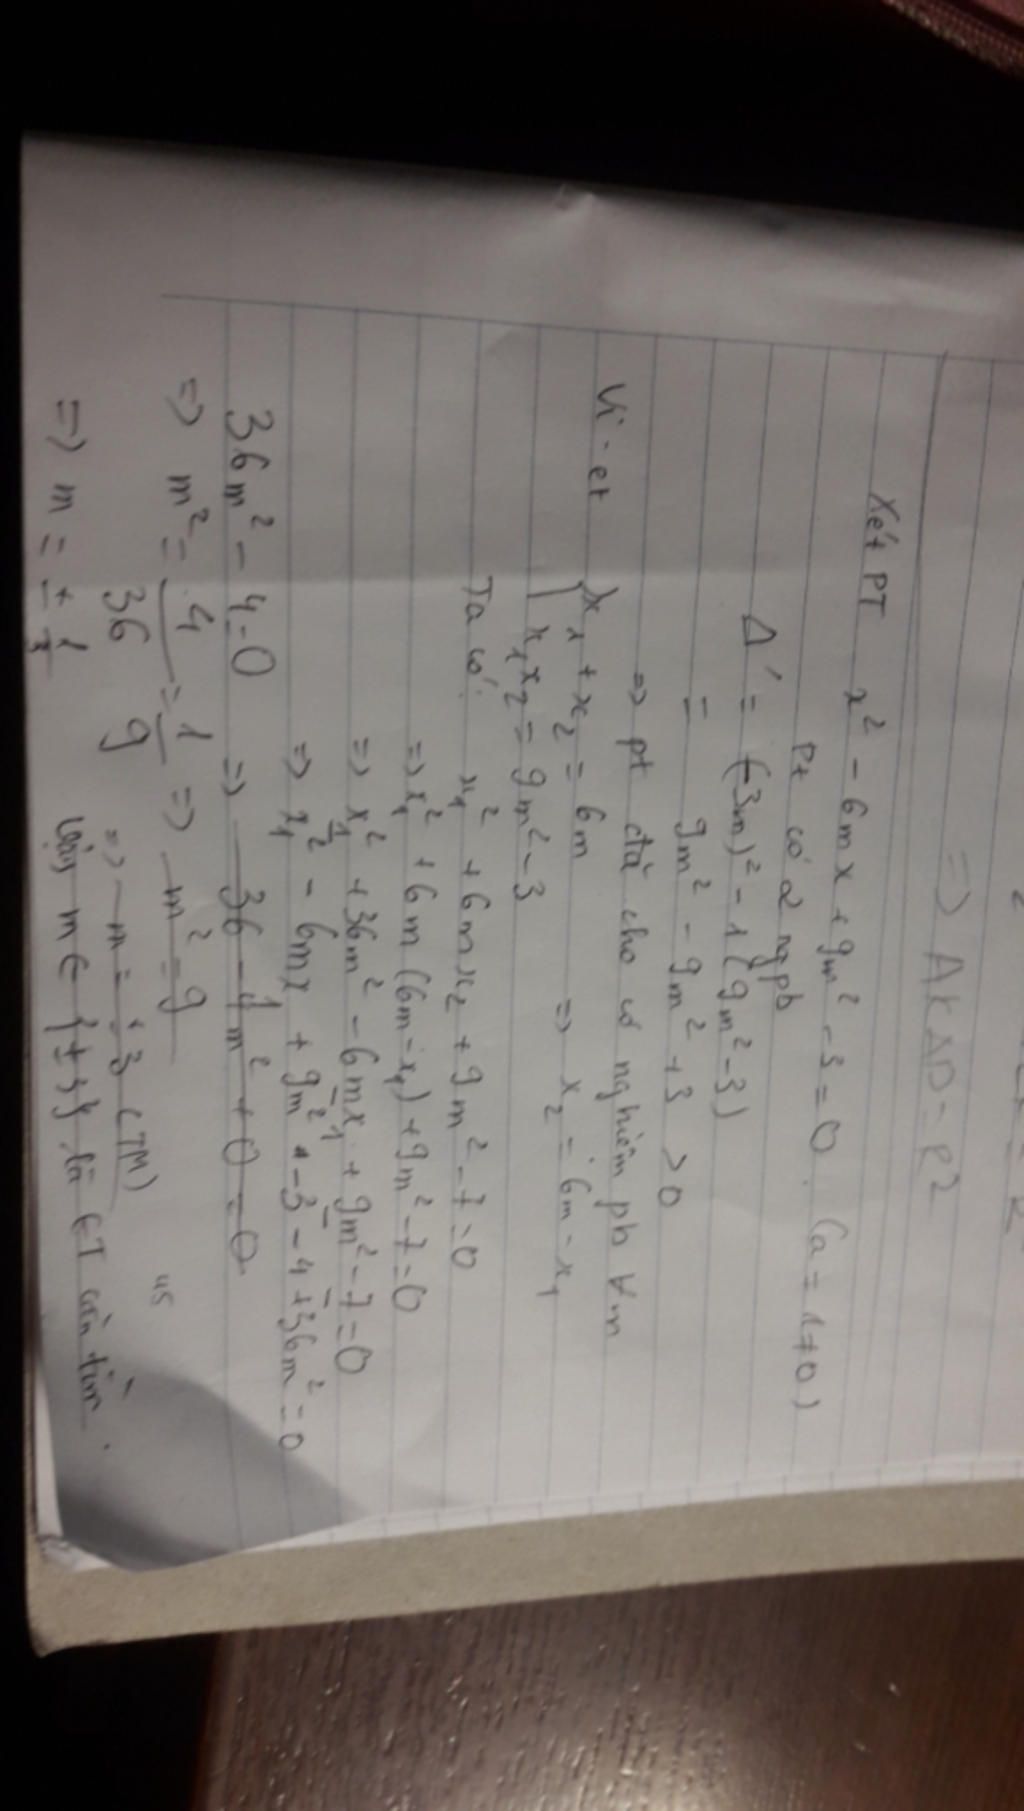 => AK.AD = R²
Xét PT x² - 6mx + 9m² - 3 = 0 (a = 1 ≠ 0)
Pt có 2 ngpb
Δ' = (-3m)² - 1(9m² - 3)
= 9m² - 9m² + 3 > 0
=> pt đã cho có nghiệm pb ∀m
Vi-et { x₁ + x₂ = 6m => x₂ = 6m - x₁
x₁x₂ = 9m² - 3
Ta có: x₁² + 6mx₂ + 9m² - 7 = 0
=> x₁² + 6m(6m - x₁) + 9m² - 7 = 0
=> x₁² + 36m² - 6mx₁ + 9m² - 7 = 0
=> x₁² - 6mx₁ + 9m² - 3 - 4 + 36m² = 0
36m² - 4 = 0 => 36 - 4m² + 0 = 0
=> m² = 4/36 = 1/9 => m² = 9
=> m = ± 1/3 => m = ± 3 (TM)
Vậy m ∈ {±3} là GT cần tìm.